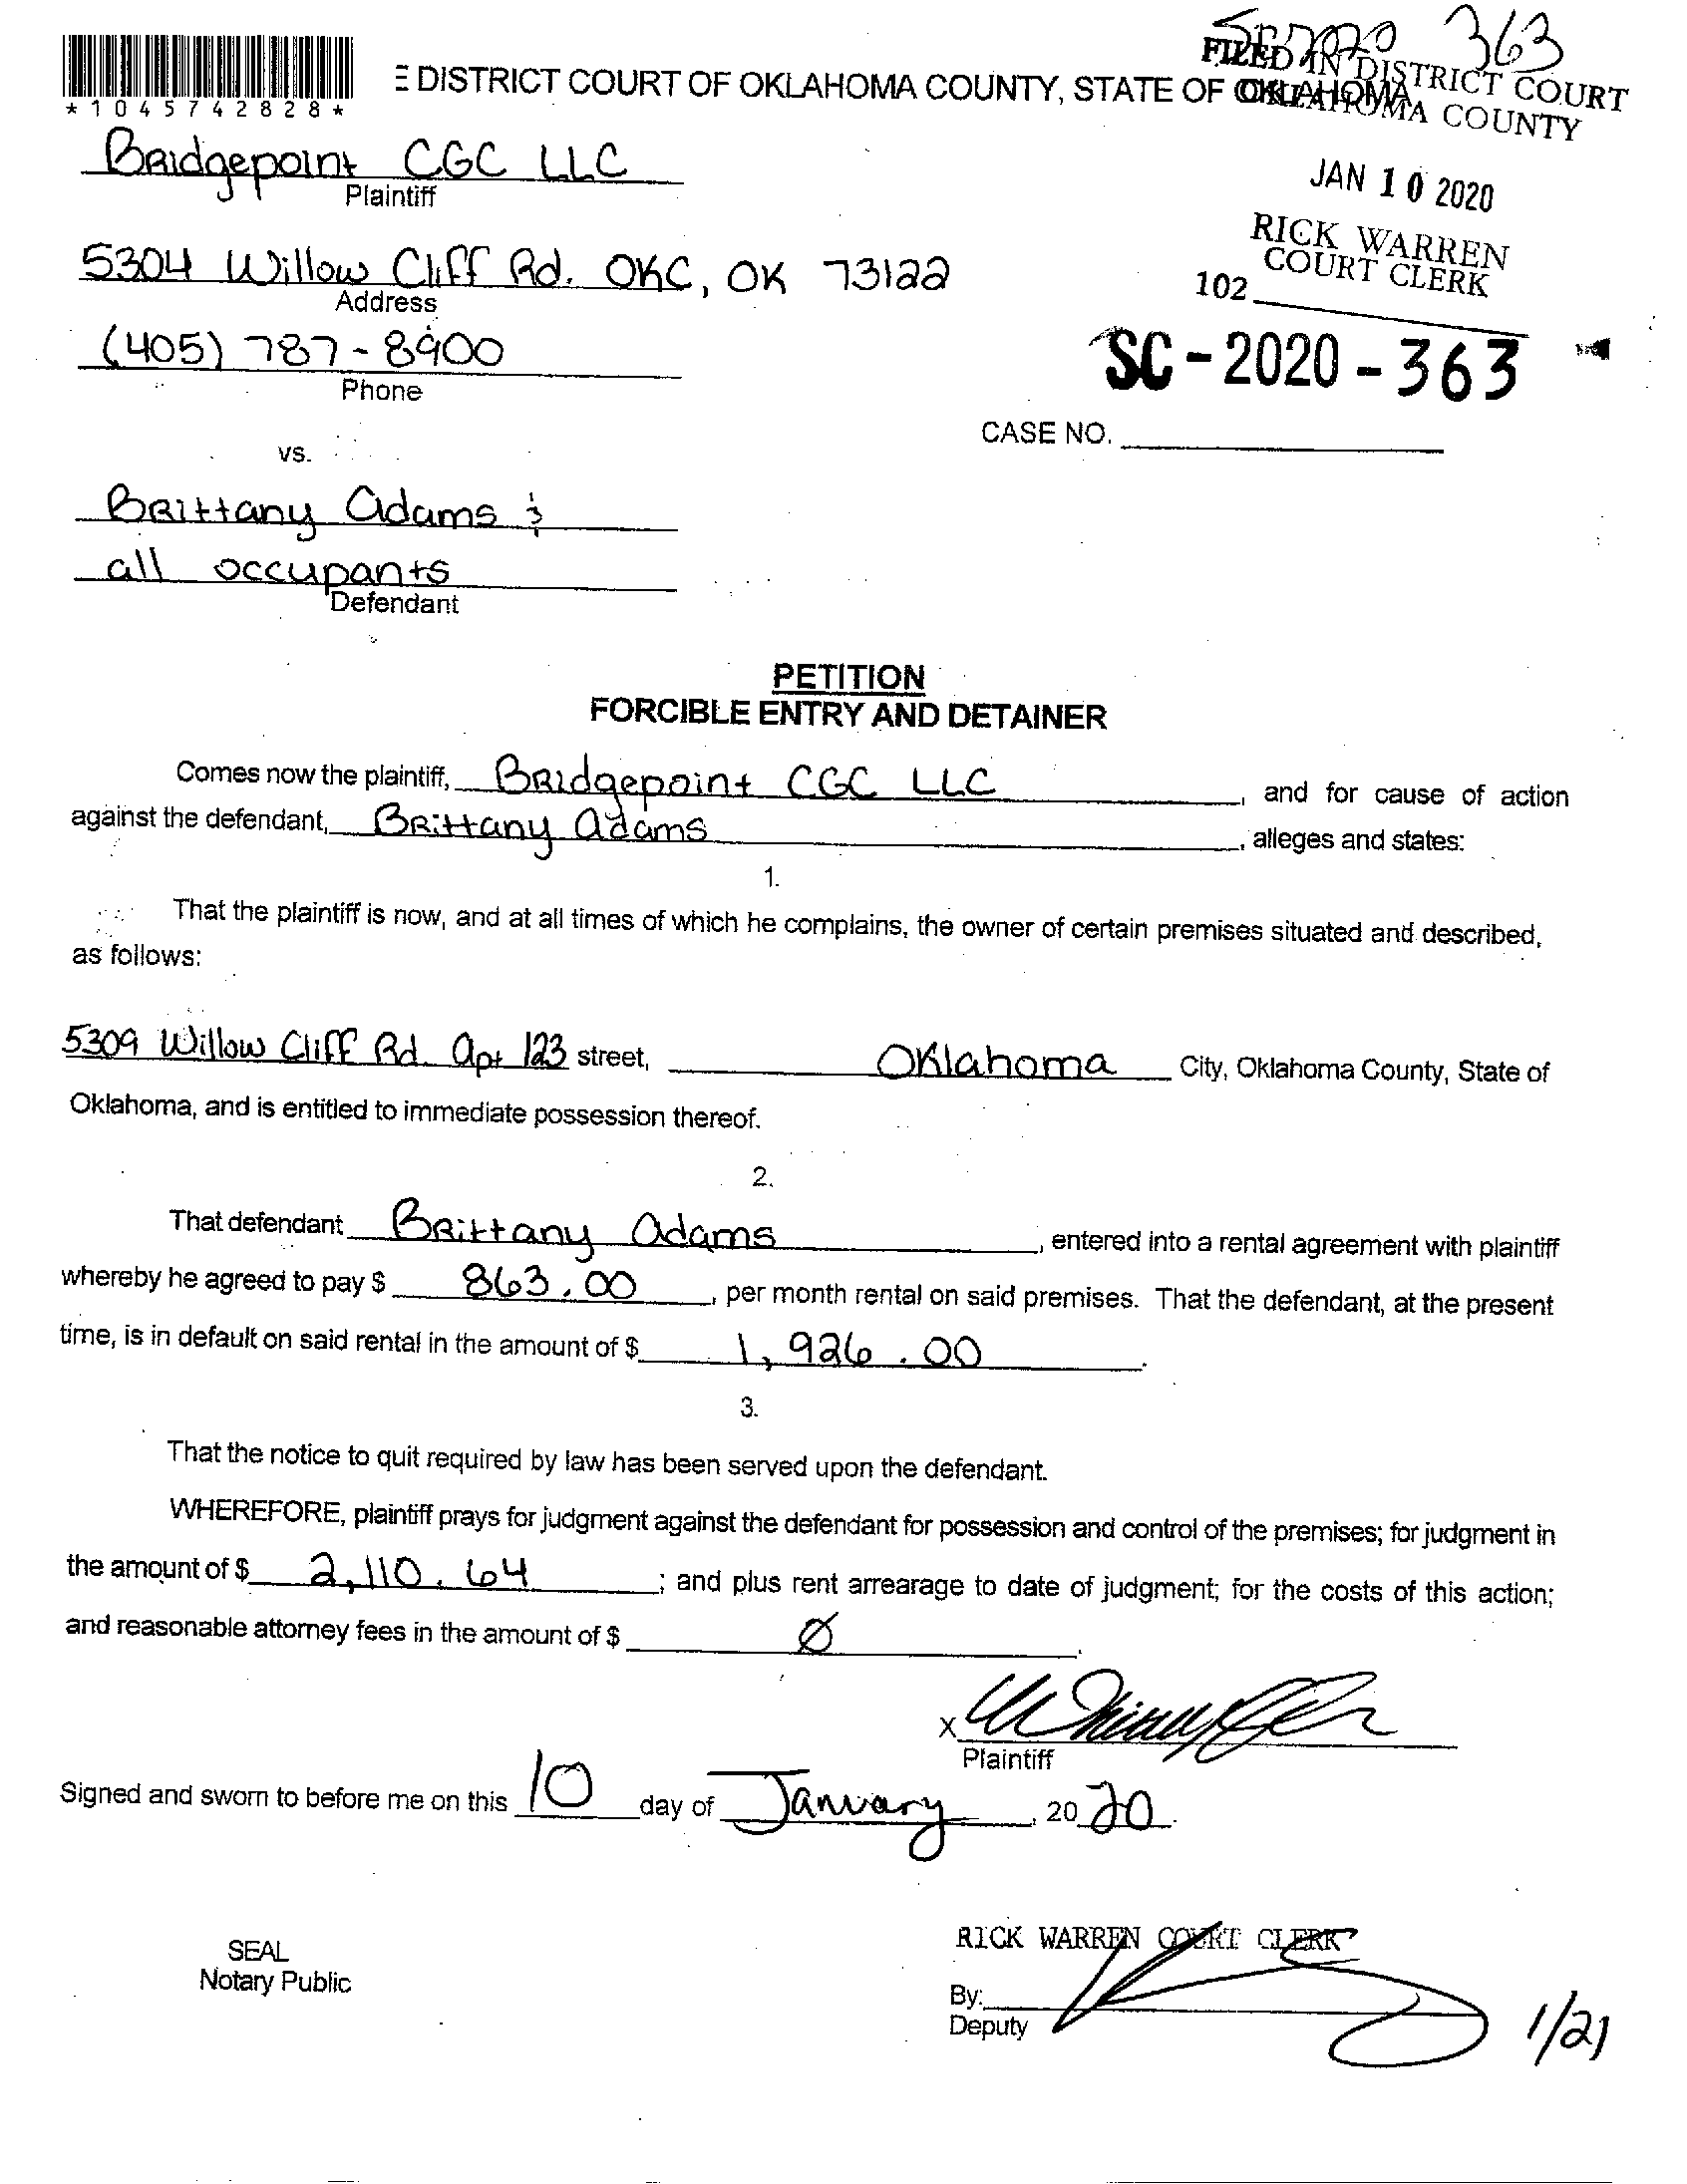 SC 2020 363
FILED IN DISTRICT COURT
OKLAHOMA COUNTY
*1045742828*
E DISTRICT COURT OF OKLAHOMA COUNTY, STATE OF OKLAHOMA
JAN 10 2020
RICK WARREN
COURT CLERK
102
Bridgepoint CGC LLC
Plaintiff
5304 Willow Cliff Rd. OKC, OK 73122
Address
(405) 787-8900
Phone
SC-2020-363
CASE NO.
vs.
Brittany Adams &
all occupants
Defendant
PETITION
FORCIBLE ENTRY AND DETAINER
Comes now the plaintiff, Bridgepoint CGC LLC, and for cause of action
against the defendant, Brittany Adams, alleges and states:
1.
That the plaintiff is now, and at all times of which he complains, the owner of certain premises situated and described,
as follows:
5309 Willow Cliff Rd. Apt 123 street, Oklahoma City, Oklahoma County, State of
Oklahoma, and is entitled to immediate possession thereof.
2.
That defendant Brittany Adams, entered into a rental agreement with plaintiff
whereby he agreed to pay $ 863.00, per month rental on said premises. That the defendant, at the present
time, is in default on said rental in the amount of $ 1,926.00.
3.
That the notice to quit required by law has been served upon the defendant.
WHEREFORE, plaintiff prays for judgment against the defendant for possession and control of the premises; for judgment in
the amount of $ 2,110.64; and plus rent arrearage to date of judgment; for the costs of this action;
and reasonable attorney fees in the amount of $ Ø.
X
Plaintiff
Signed and sworn to before me on this 10 day of January, 2020.
SEAL
Notary Public
RICK WARREN COURT CLERK
By:
Deputy
1/21